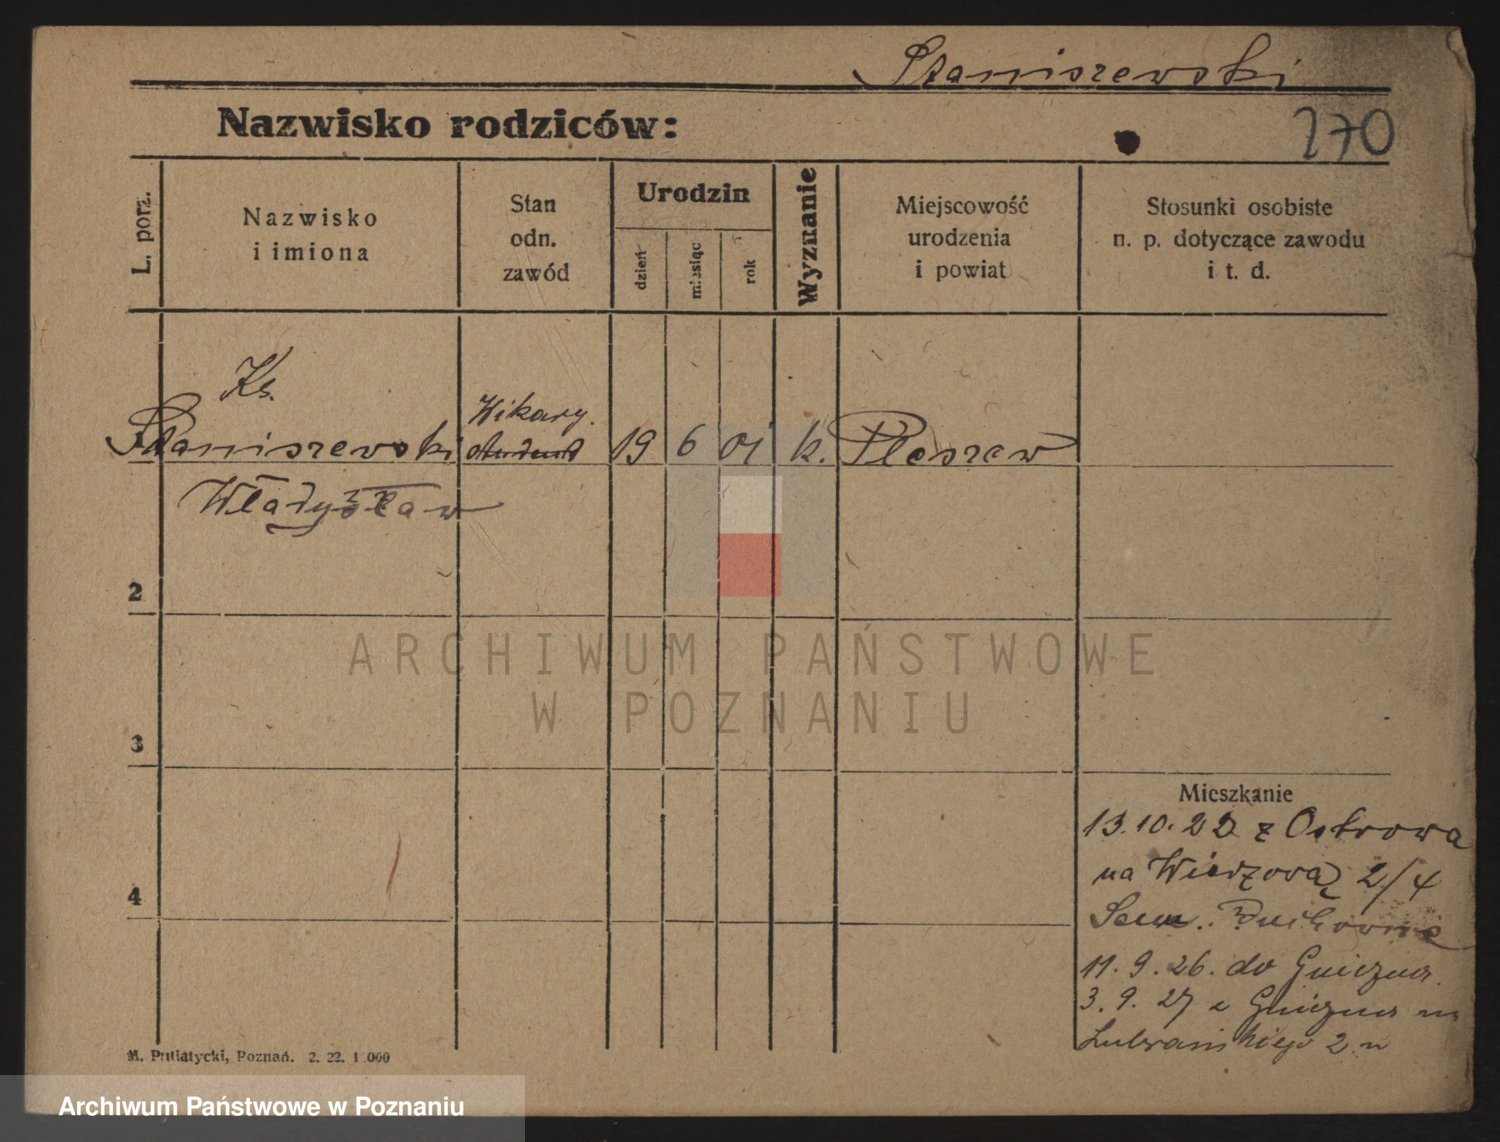 Staniszewski
Nazwisko rodziców:
270
L. porz.
Nazwisko
i imiona
Stan
odn.
zawód
Urodzin
dzień
miesiąc
rok
Wyznanie
Miejscowość
urodzenia
i powiat
Stosunki osobiste
n. p. dotyczące zawodu
i t. d.
Ks.
Staniszewski
Władysław
Wikary.
student
19
6
01
k.
Pleszew
2
3
4
Mieszkanie
13.10.22 z Ostrowa
na Wieżową 2/4
Sem. Duchowne
11.9.26. do Gniezna
3.9.27 z Gniezna na
Lubrańskiego 2
M. Putiatycki, Poznań. 2. 22. 1 000
ARCHIWUM PAŃSTWOWE
W POZNANIU
Archiwum Państwowe w Poznaniu